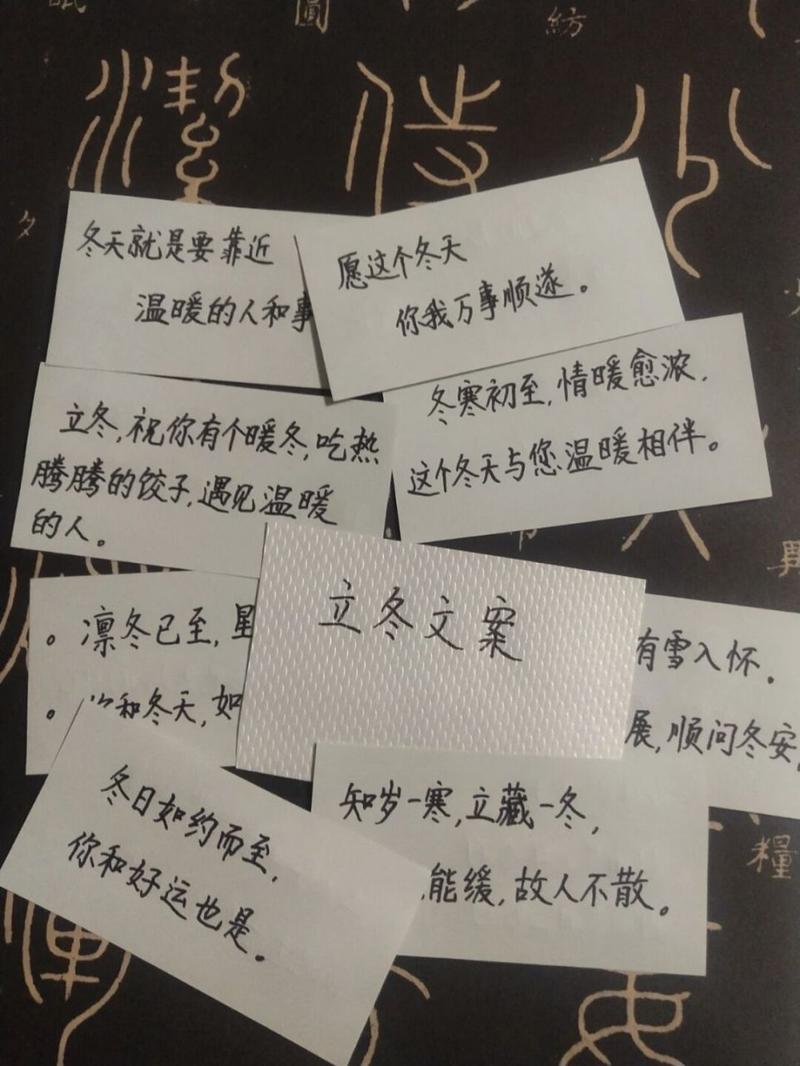 冬天就是要靠近
温暖的人和事
愿这个冬天
你我万事顺遂。
冬寒初至,情暖愈浓.
这个冬天与您温暖相伴。
立冬,祝你有个暖冬,吃热
腾腾的饺子,遇见温暖
的人。
立冬文案
。凛冬已至,星
。和冬天,如
有雪入怀.
展,顺问冬安
冬日如约而至,
你和好运也是。
知岁一寒,立藏一冬,
能缓,故人不散。
圓
紡
夕
異
糧